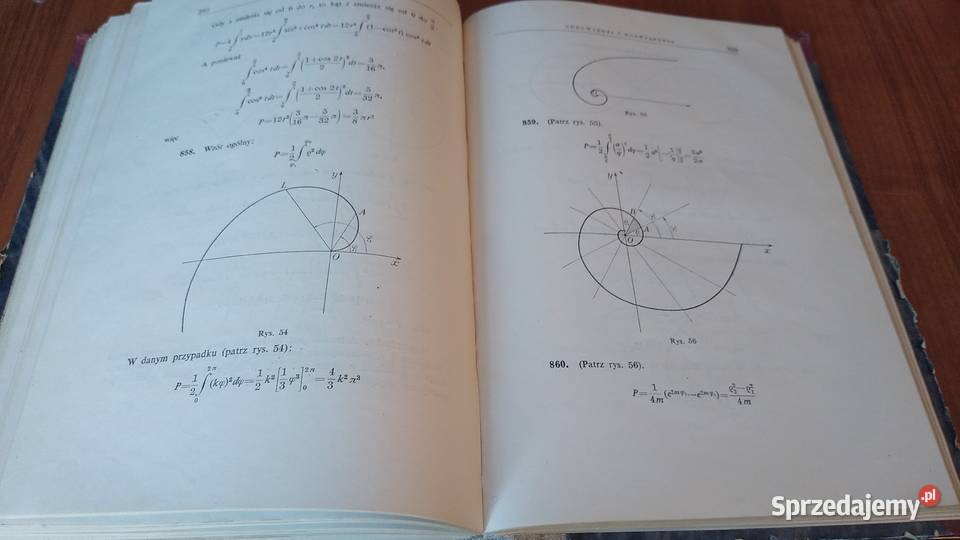 Gdy x zmienia się od 0 do r, to kąt t zmienia się od 0 do π/2
P=4∫ydx=12r²∫sin²t cos⁴t dt=12r²∫(1−cos²t) cos⁴t dt
A ponieważ
∫cos⁴t dt=∫((1+cos 2t)/2)² dt=3/16 π,
∫cos⁶t dt=∫((1+cos 2t)/2)³ dt=5/32 π,
więc
P=12r²(3/16 π−5/32 π)=3/8 πr²
858. Wzór ogólny:
P=1/2∫ϱ²dφ
y
L
A
φ₁
O
x
Rys. 54
W danym przypadku (patrz rys. 54):
P=1/2∫₀^2π(kφ)²dφ=1/2 k²[1/3 φ³]₀^2π=4/3 k²π³
ODPOWIEDZI I ROZWIĄZANIA
Rys. 55
859. (Patrz rys. 55).
y
B
A
O
x
Rys. 56
860. (Patrz rys. 56).
P=1/4m(e^2mφ₂−e^2mφ₁)=(ϱ₂²−ϱ₁²)/4m
Sprzedajemy.pl